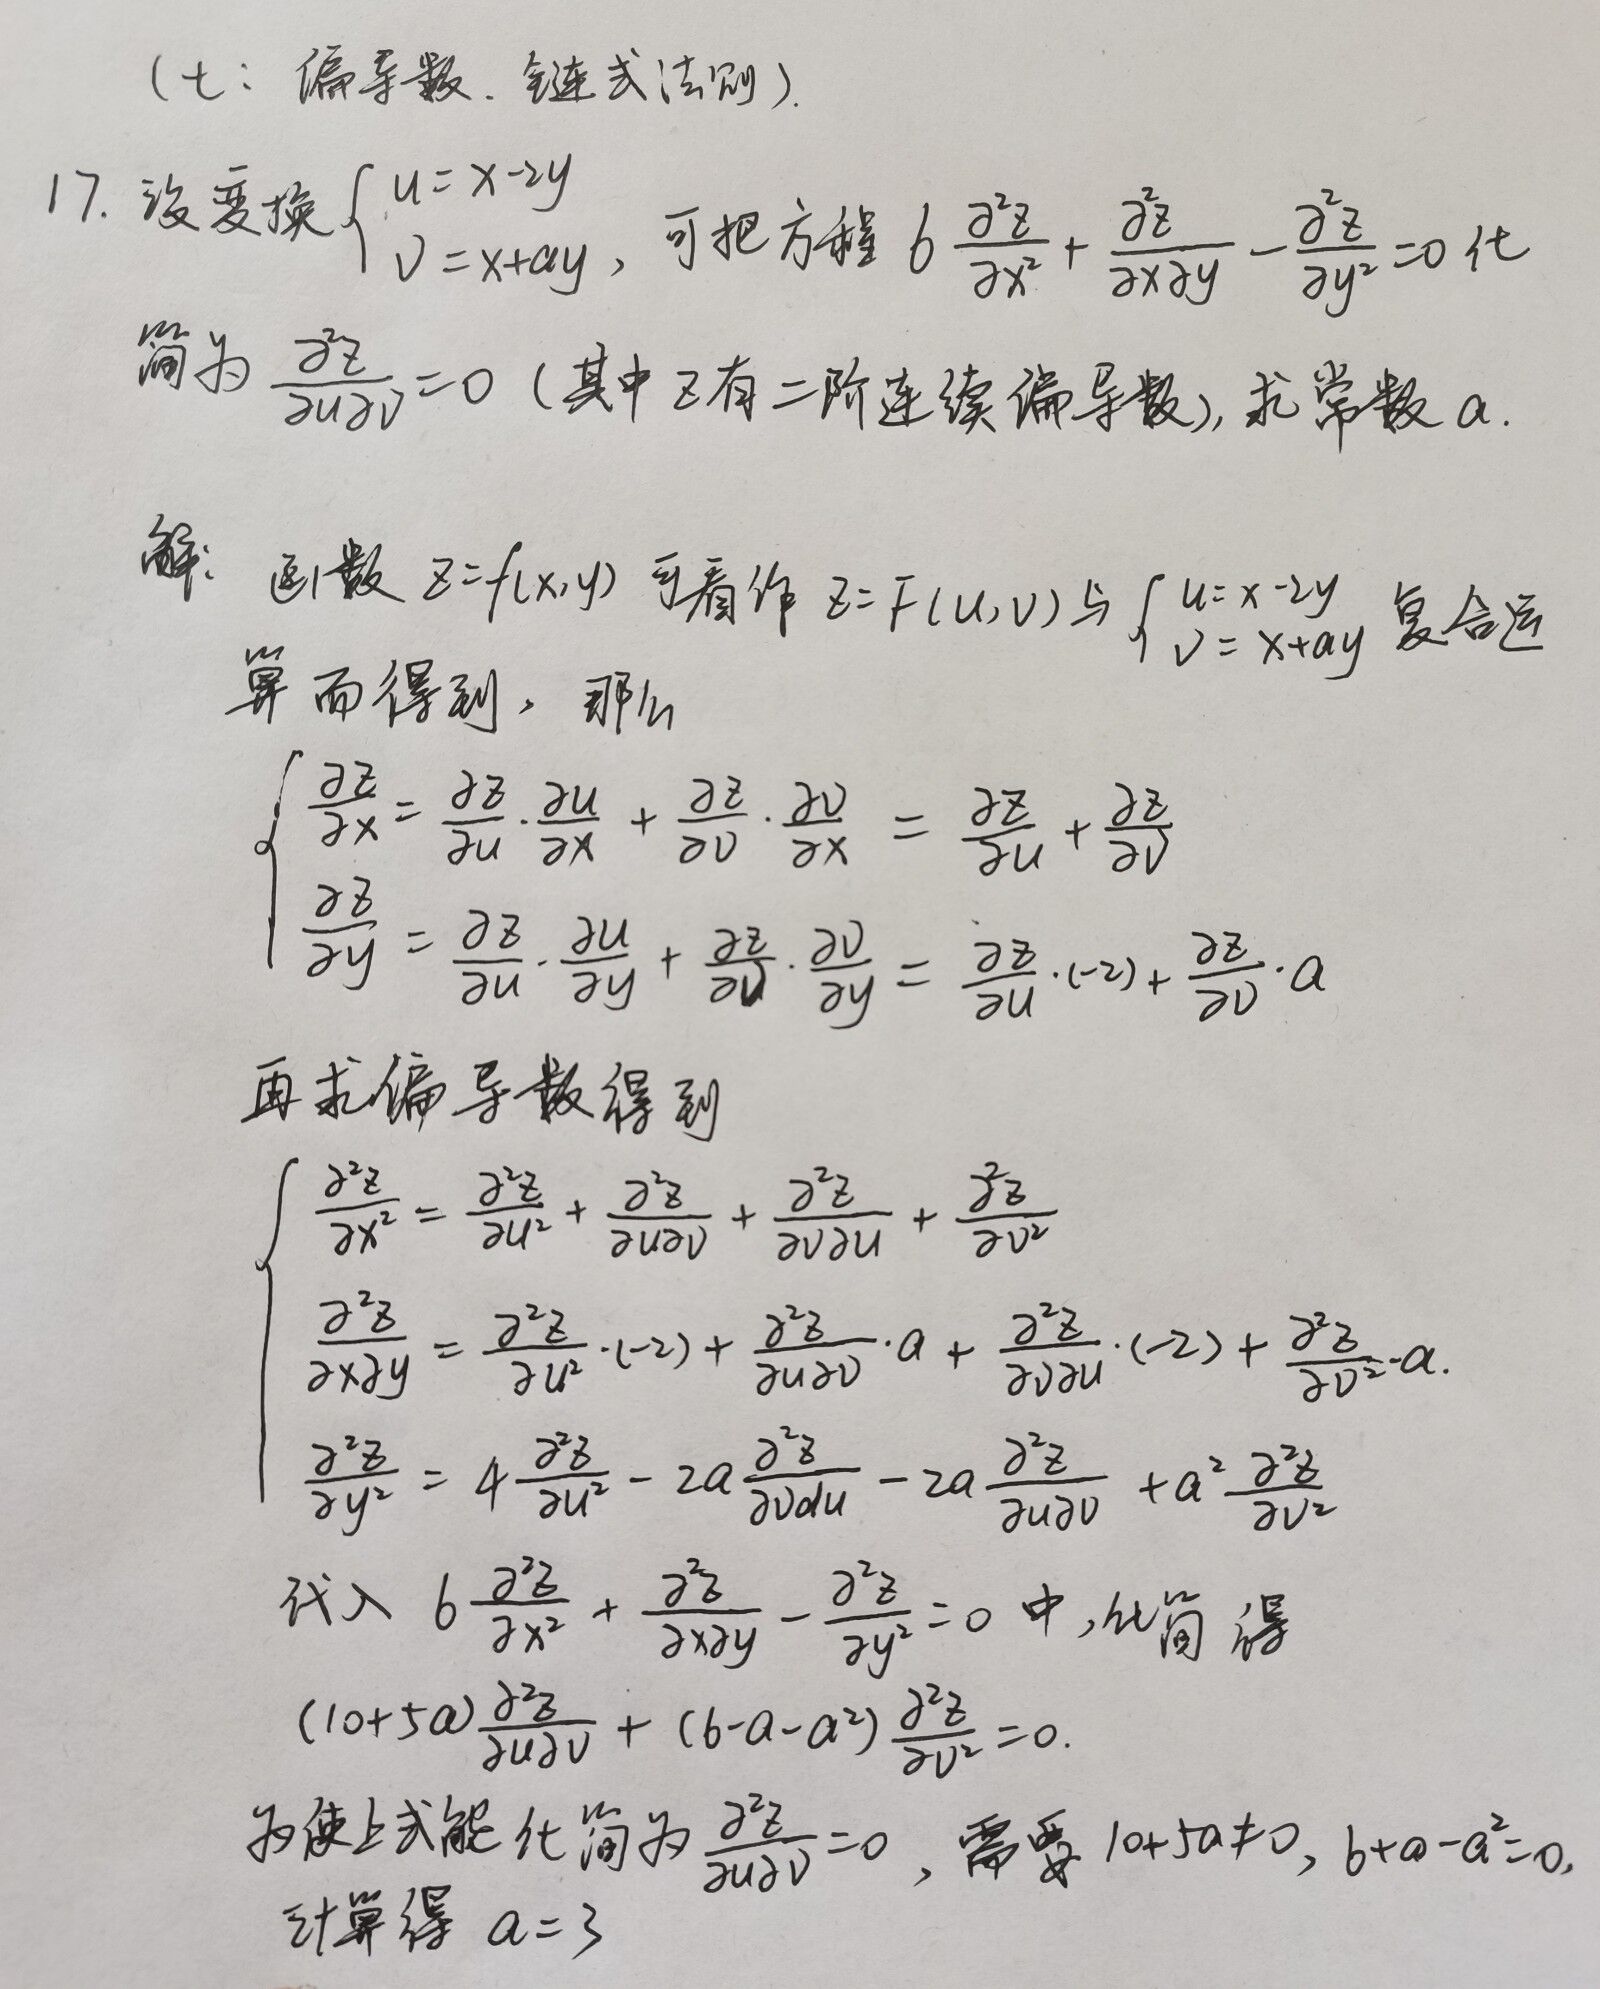 (七: 偏导数. 链式法则).
17. 设变换 { u=x-2y
v=x+ay , 可把方程 6 ∂²z/∂x² + ∂²z/∂x∂y - ∂²z/∂y² =0 化
简为 ∂²z/∂u∂v =0 (其中z有二阶连续偏导数), 求常数a.
解: 函数 z=f(x,y) 可看作 z=F(u,v) 与 { u=x-2y
v=x+ay 复合运
算而得到, 那么
{ ∂z/∂x = ∂z/∂u · ∂u/∂x + ∂z/∂v · ∂v/∂x = ∂z/∂u + ∂z/∂v
∂z/∂y = ∂z/∂u · ∂u/∂y + ∂z/∂v · ∂v/∂y = ∂z/∂u ·(-2)+ ∂z/∂v · a
再求偏导数得到
{ ∂²z/∂x² = ∂²z/∂u² + ∂²z/∂u∂v + ∂²z/∂v∂u + ∂²z/∂v²
∂²z/∂x∂y = ∂²z/∂u² ·(-2)+ ∂²z/∂u∂v · a + ∂²z/∂v∂u ·(-2)+ ∂²z/∂v² · a.
∂²z/∂y² = 4 ∂²z/∂u² - 2a ∂²z/∂vdu - 2a ∂²z/∂u∂v + a² ∂²z/∂v²
代入 6 ∂²z/∂x² + ∂²z/∂x∂y - ∂²z/∂y² =0 中, 化简得
(10+5a) ∂²z/∂u∂v + (6-a-a²) ∂²z/∂v² =0.
为使上式能化简为 ∂²z/∂u∂v =0 , 需要 10+5a≠0, 6+a-a²=0,
计算得 a=3